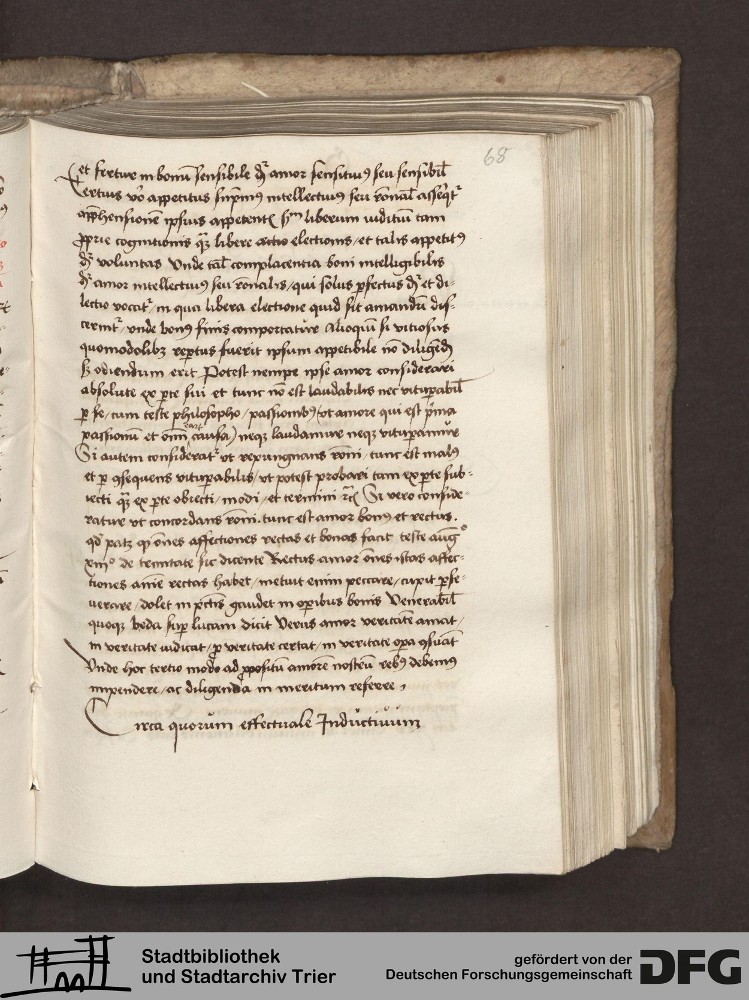 68
et fertur in bonū sensibile dr̄ amor sensitiuꝰ seu sensibil̄
Tertius vo appetitus supͥmꝰ intellectiuꝰ seu rōnal̄ asseqͥtʳ
app̄hensionē ipsius appetentꝭ sm̄ liberum iuditiū tam
ꝓprie cognitionis qꝫ libere electionis / et talis appetitꝰ
dr̄ voluntas Vnde tal̄ complacentia boni intelligibilis
dr̄ amor intellectiuꝰ seu rōnalis / qui solus ꝑfectus dr̄ et di-
lectio vocatʳ / in qua libera electione quid sit amandū dis-
cernitʳ / vnde bonꝰ finis comportatur Alioquū si vitiosus
quomodolibꝫ repertus fuerit ipsum appetibile nō diligēdū
sꝫ odiendum erit Potest nempe ipse amor considerari
absolute ex ꝑte sui et tunc nō est laudabilis nec vituꝑabil̄
ꝑ se / cum teste philosopho / passionibꝰ (vt amore qui est pͥma
passionū et oīm causa) neqꝫ laudamur neqꝫ vituꝑamur
Si autem consideratʳ vt repungnans roni / tunc est malꝰ
et ꝑ ꝯsequens vituꝑabilis / vt potest probari tam ex ꝑte sub-
iecti qꝫ ex ꝑte obiecti / modi / et termini ꝛcꝭ Si vero conside-
ratur vt concordans rōni . tunc est amor bonꝰ et rectus .
qd̓ patꝫ qꝫ oēs affectiones rectas et bonas facit teste aug̓ᵒ
xiiijᵒ de trinitate sic dicente Rectus amor oēs istas affec-
tiones aīe rectas habet / metuit enim peccare / cupit ꝑse-
uerare / dolet in pctīs gaudet in oꝑibus bonis Venerabil̄
quoqꝫ beda suꝑ lucam dicit Verus amor veritatē amat /
in veritate iudicat / ꝓ veritate certat / in veritate oꝑa ꝯsuāt
Vnde hoc tertio modo ad ꝓpositū amorē nostrū rebꝰ debemꝰ
impendere / ac diligenda in meritum referre ,
Circa quorum effectuale Inductiuum
Stadtbibliothek
und Stadtarchiv Trier
gefördert von der
Deutschen Forschungsgemeinschaft
DFG